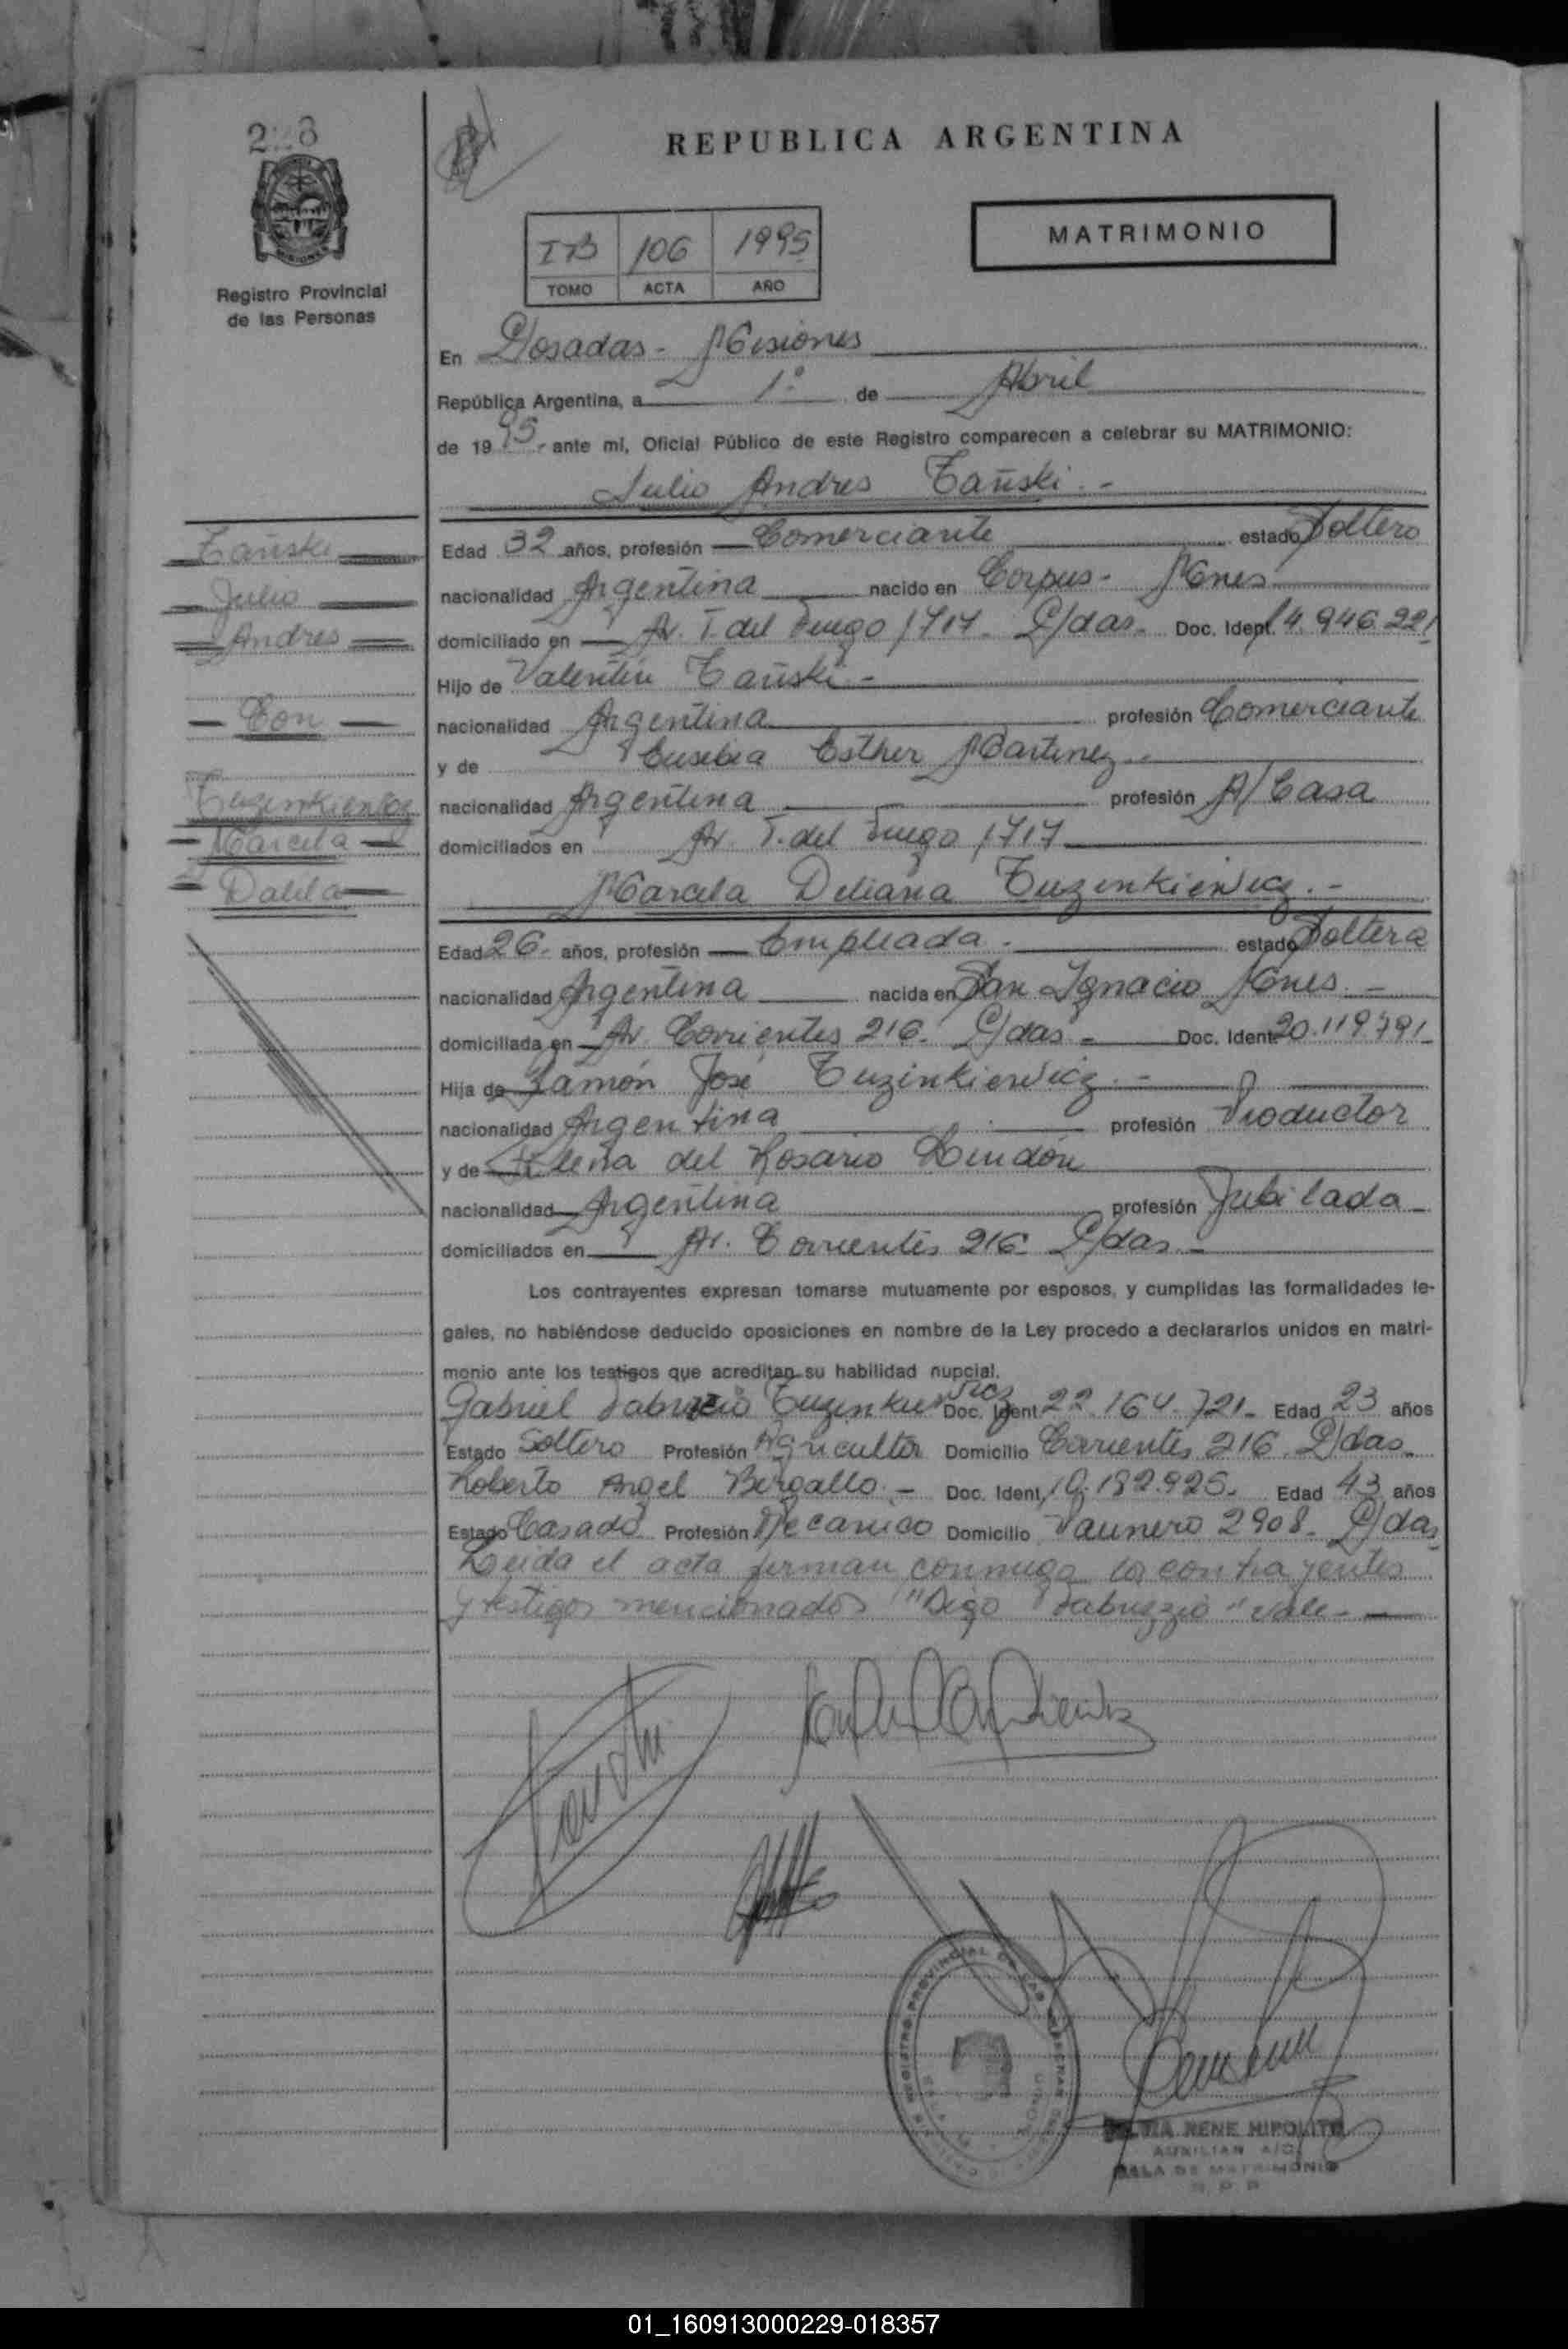 REPUBLICA ARGENTINA
MATRIMONIO
IB 106 1995
TOMO ACTA AÑO
Registro Provincial
de las Personas
En Posadas - Misiones
República Argentina, a 1º de Abril
de 1995 - ante mí, Oficial Público de este Registro comparecen a celebrar su MATRIMONIO:
Julio Andres Tañski . -
Tañski
Julio
Andres
Con
Tuzinkiewicz
Marcela
Dalila
Edad 32 años, profesión Comerciante estado Soltero
nacionalidad Argentina nacido en Corpus - Mnes
domiciliado en Av. T. del Fuego 1717 - P/das - Doc. Ident. 14.946.221
Hijo de Valentín Tañski . -
nacionalidad Argentina profesión Comerciante
y de Eusebia Esther Martinez . -
nacionalidad Argentina profesión A/Casa
domiciliados en Av. T. del Fuego 1717
Marcela Deliana Tuzinkiewicz . -
Edad 26 - años, profesión Empleada . estado Soltera
nacionalidad Argentina nacida en San Ignacio Mnes . -
domiciliada en Av. Corrientes 216. P/das - Doc. Ident. 20.119.791 -
Hija de Ramón José Tuzinkiewicz . -
nacionalidad Argentina profesión Productor
y de Elena del Rosario Rendón
nacionalidad Argentina profesión Jubilada -
domiciliados en Av. Corrientes 216 P/das -
Los contrayentes expresan tomarse mutuamente por esposos, y cumplidas las formalidades le-
gales, no habiéndose deducido oposiciones en nombre de la Ley procedo a declararlos unidos en matri-
monio ante los testigos que acreditan su habilidad nupcial.
Gabriel Tuzinkiewicz Doc. Ident. 22.164.721 - Edad 23 años
Estado Soltero Profesión Agricultor Domicilio Corrientes 216 P/das -
Roberto Angel Bergallo . - Doc. Ident. 10.182.925 - Edad 43 años
Estado Casado Profesión Mecanico Domicilio Vaunero 2908 - P/das
Leida el acta firman conmigo los contrayentes
y testigos mencionados "Digo Fabrizzio" vale -
RENE HIPOLITO
AUXILIAR A/C
SALA DE MATRIMONIO
R. P. P.
01_160913000229-018357